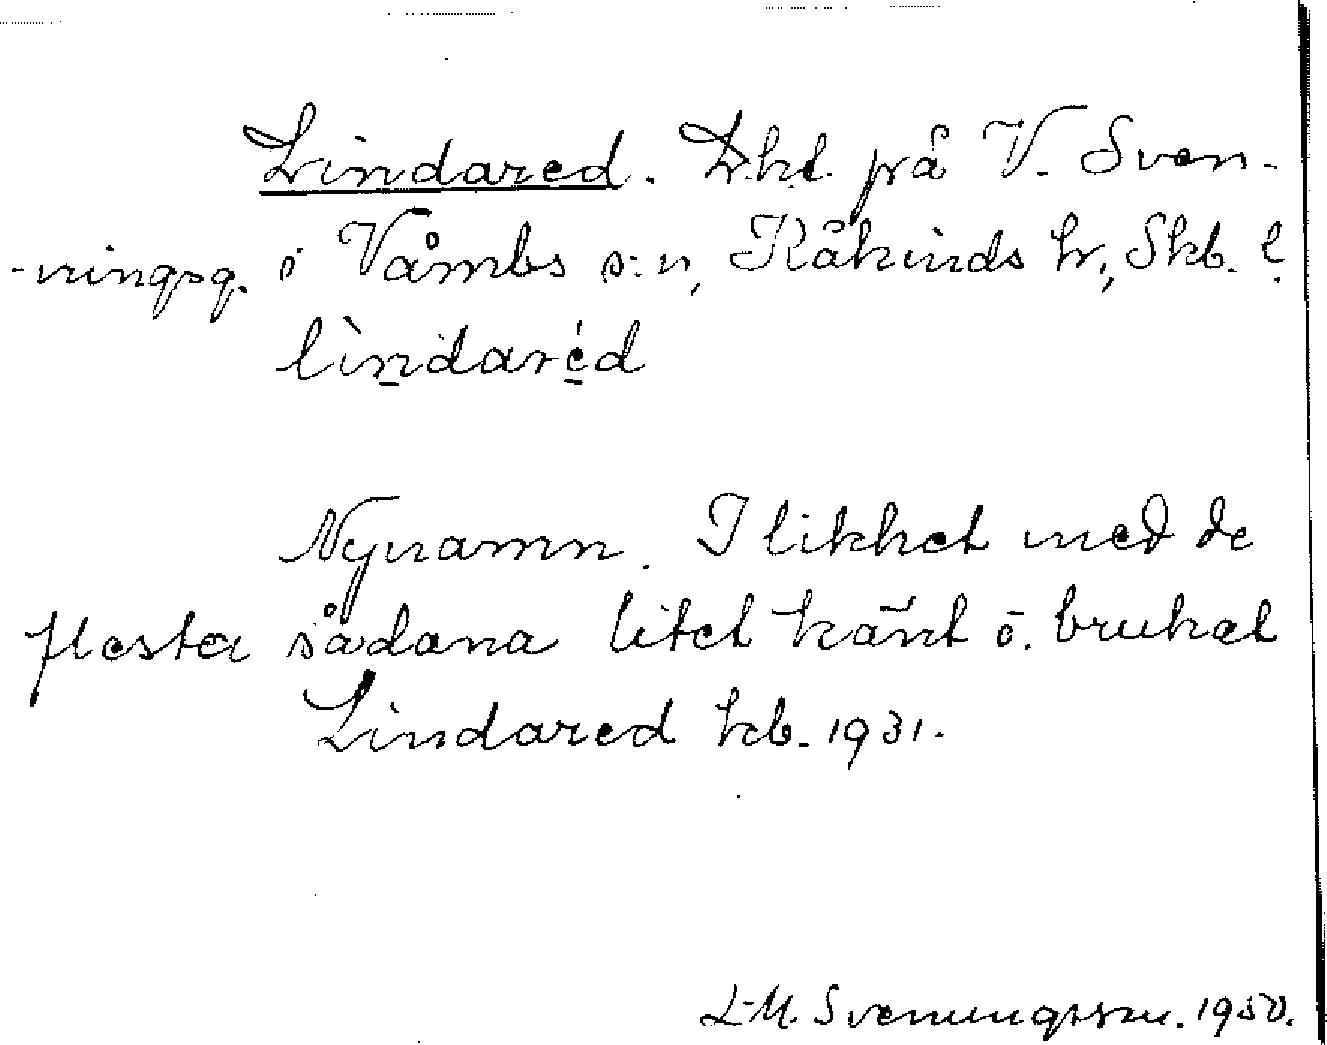 Lindared. Lht. på V. Sven-
-ningsg. i Våmbs s:n, Kåkinds hr, Skb. l.
lìndaréd
Nynamn. I likhet med de
flesta sådana litet känt o. brukat
Lindared kb. 1931.
L-M. Svenungsson. 1950.